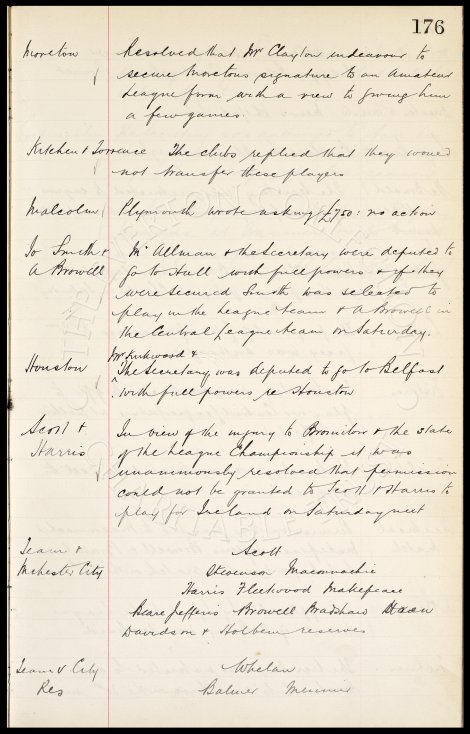 176
Moreton Resolved that Mr Clayton endeavour to
secure Moretons signature to an Amateur
League form with a view to giving him
a few games.
Kitchen & Torrance The clubs replied that they would
not transfer these players
Malcolm Plymouth wrote asking £750: no action
Jo Smith & Mr Allman & the Secretary were deputed to
A Browell go to Hull with full powers & if they
were secured Smith was selected to
play in the League team & A Browell in
the Central League team on Saturday.
Mr Kirkwood &
Houston The Secretary was deputed to go to Belfast
with full powers re Houston
Scott & In view of the injury to Bromilow & the state
Harris of the League Championship it was
unanimously resolved that permission
could not be granted to Scott & Harris to
play for Ireland on Saturday next
Team v Scott
Mchester City Stevenson Maconnachie
Harris Fleetwood Makepeace
Beare Jefferis Browell Bradshaw
Davidson & Holbem reserves
Team v City Whelan
Res Balmer Meunier